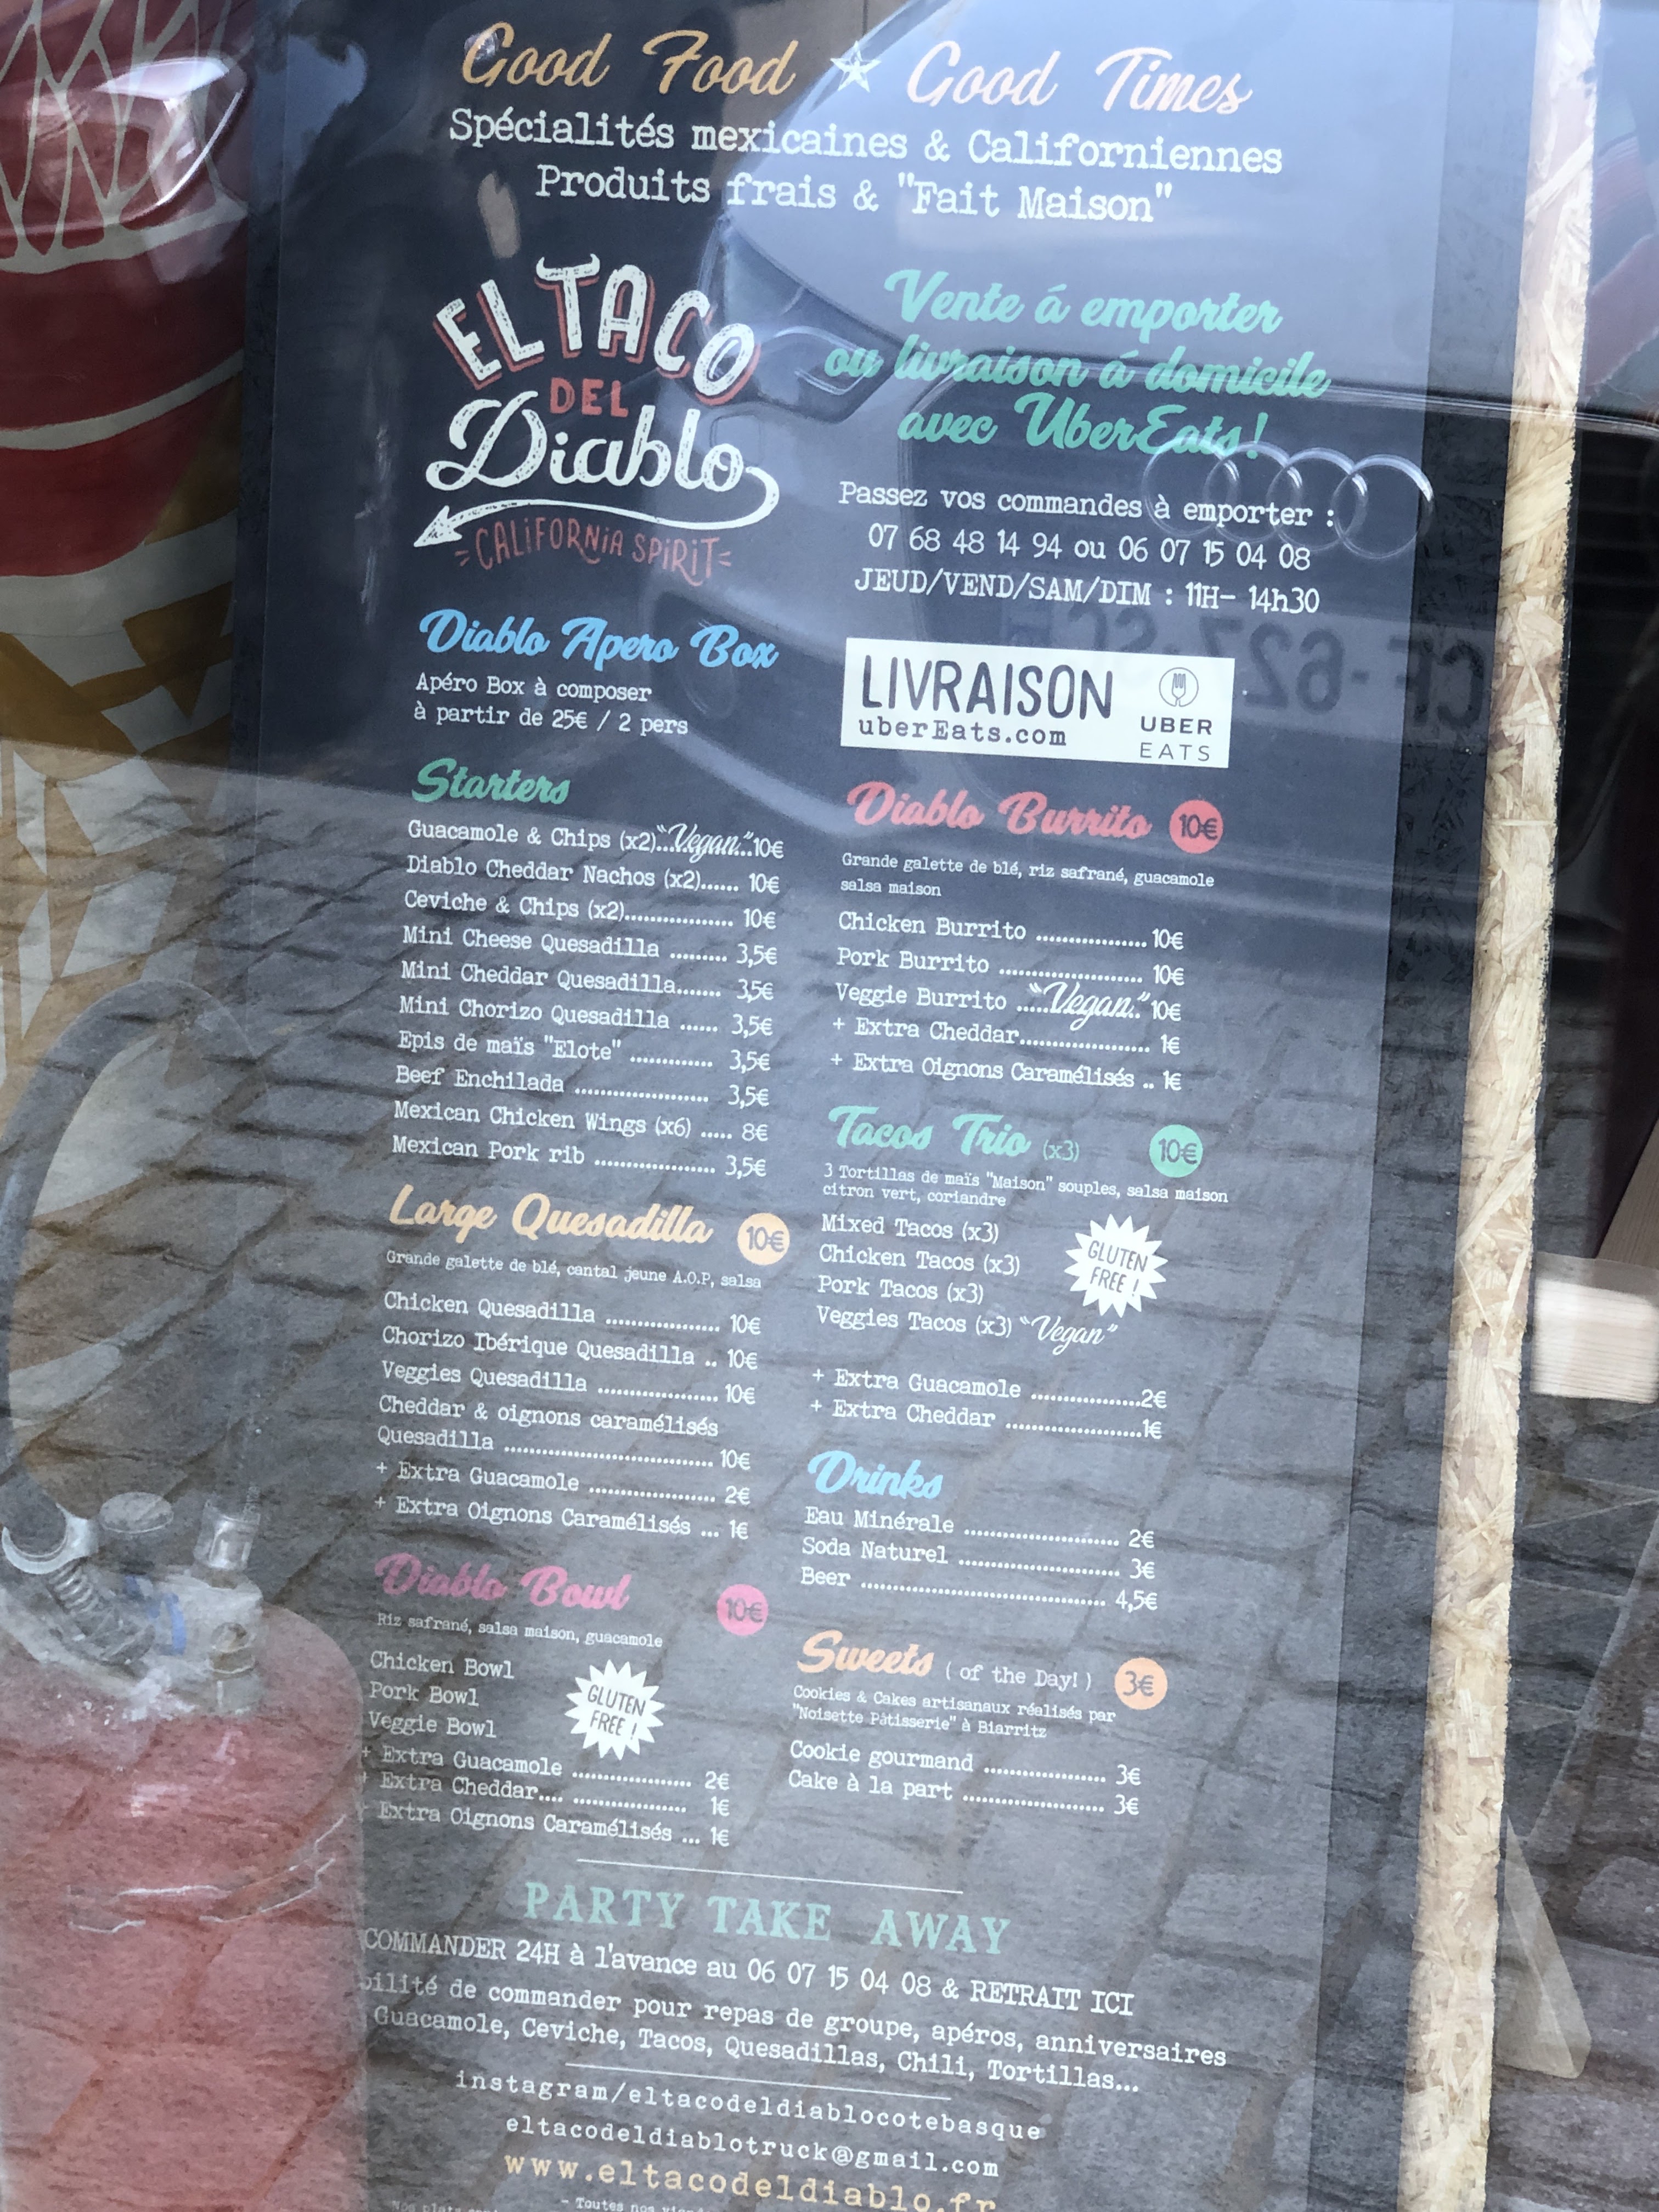 Good Food ★ Good Times
Spécialités mexicaines & Californiennes
Produits frais & "Fait Maison"
EL TACO
DEL
Diablo
CALIFORNIA SPIRIT
Vente á emporter
ou livraison á domicile
avec UberEats!
Passez vos commandes à emporter :
07 68 48 14 94 ou 06 07 15 04 08
JEUD/VEND/SAM/DIM : 11H- 14h30
LIVRAISON
uberEats.com
UBER
EATS
Diablo Apero Box
Apéro Box à composer
à partir de 25€ / 2 pers
Starters
Guacamole & Chips (x2)..."Vegan"...10€
Diablo Cheddar Nachos (x2)...... 10€
Ceviche & Chips (x2)................. 10€
Mini Cheese Quesadilla ......... 3,5€
Mini Cheddar Quesadilla....... 3,5€
Mini Chorizo Quesadilla ...... 3,5€
Epis de maïs "Elote" ............. 3,5€
Beef Enchilada ..................... 3,5€
Mexican Chicken Wings (x6) ..... 8€
Mexican Pork rib ................... 3,5€
Large Quesadilla 10€
Grande galette de blé, cantal jeune A.O.P, salsa
Chicken Quesadilla .................. 10€
Chorizo Ibérique Quesadilla .. 10€
Veggies Quesadilla ................... 10€
Cheddar & oignons caramélisés
Quesadilla ................................. 10€
+ Extra Guacamole .................... 2€
+ Extra Oignons Caramélisés ... 1€
Diablo Bowl 10€
Riz safrané, salsa maison, guacamole
Chicken Bowl
Pork Bowl
Veggie Bowl
GLUTEN
FREE !
+ Extra Guacamole ................... 2€
+ Extra Cheddar.... .................. 1€
Extra Oignons Caramélisés ... 1€
Diablo Burrito 10€
Grande galette de blé, riz safrané, guacamole
salsa maison
Chicken Burrito .................. 10€
Pork Burrito ....................... 10€
Veggie Burrito ....."Vegan".. 10€
+ Extra Cheddar..................... 1€
+ Extra Oignons Caramélisés .. 1€
Tacos Trio (x3) 10€
3 Tortillas de maïs "Maison" souples, salsa maison
citron vert, coriandre
Mixed Tacos (x3)
Chicken Tacos (x3)
Pork Tacos (x3)
Veggies Tacos (x3) "Vegan"
GLUTEN
FREE !
+ Extra Guacamole ..................2€
+ Extra Cheddar ......................1€
Drinks
Eau Minérale ......................... 2€
Soda Naturel .......................... 3€
Beer ....................................... 4,5€
Sweets ( of the Day! ) 3€
Cookies & Cakes artisanaux réalisés par
"Noisette Pâtisserie" à Biarritz
Cookie gourmand .................... 3€
Cake à la part ....................... 3€
PARTY TAKE AWAY
COMMANDER 24H à l'avance au 06 07 15 04 08 & RETRAIT ICI
bilité de commander pour repas de groupe, apéros, anniversaires
Guacamole, Ceviche, Tacos, Quesadillas, Chili, Tortillas...
instagram/eltacodeldiablocotebasque
eltacodeldiablotruck@gmail.com
www.eltacodeldiablo.fr
- Toutes nos